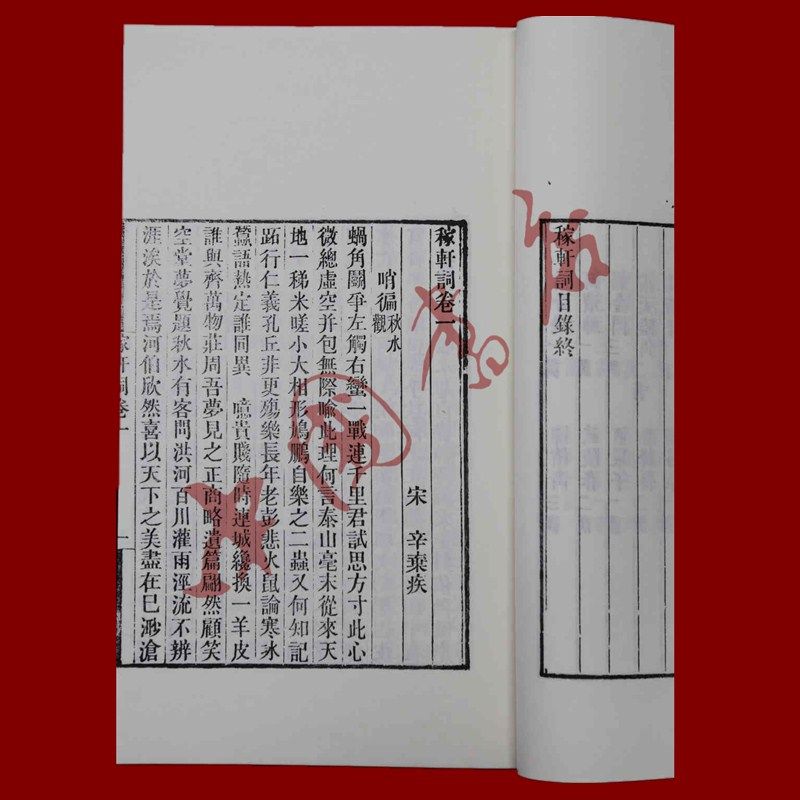 稼軒詞目錄終
稼軒詞卷一
宋 辛棄疾
哨徧秋水觀
蝸角鬭爭左觸右蠻一戰連千里君試思方寸此心
微總虛空并包無際喻此理何言泰山毫末從來天
地一稊米嗟小大相形鳩鵬自樂之二蟲又何知記
跖行仁義孔丘非更殤樂長年老彭悲火鼠論寒冰
蠶語熱定誰同異 噫貴賤隨時連城纔換一羊皮
誰與齊萬物莊周吾夢見之正商略遺篇翩然顧笑
空堂夢覺題秋水有客問洪河百川灌雨涇流不辨
涯涘於是焉河伯欣然喜以天下之美盡在已渺滄
稼軒詞卷一
一